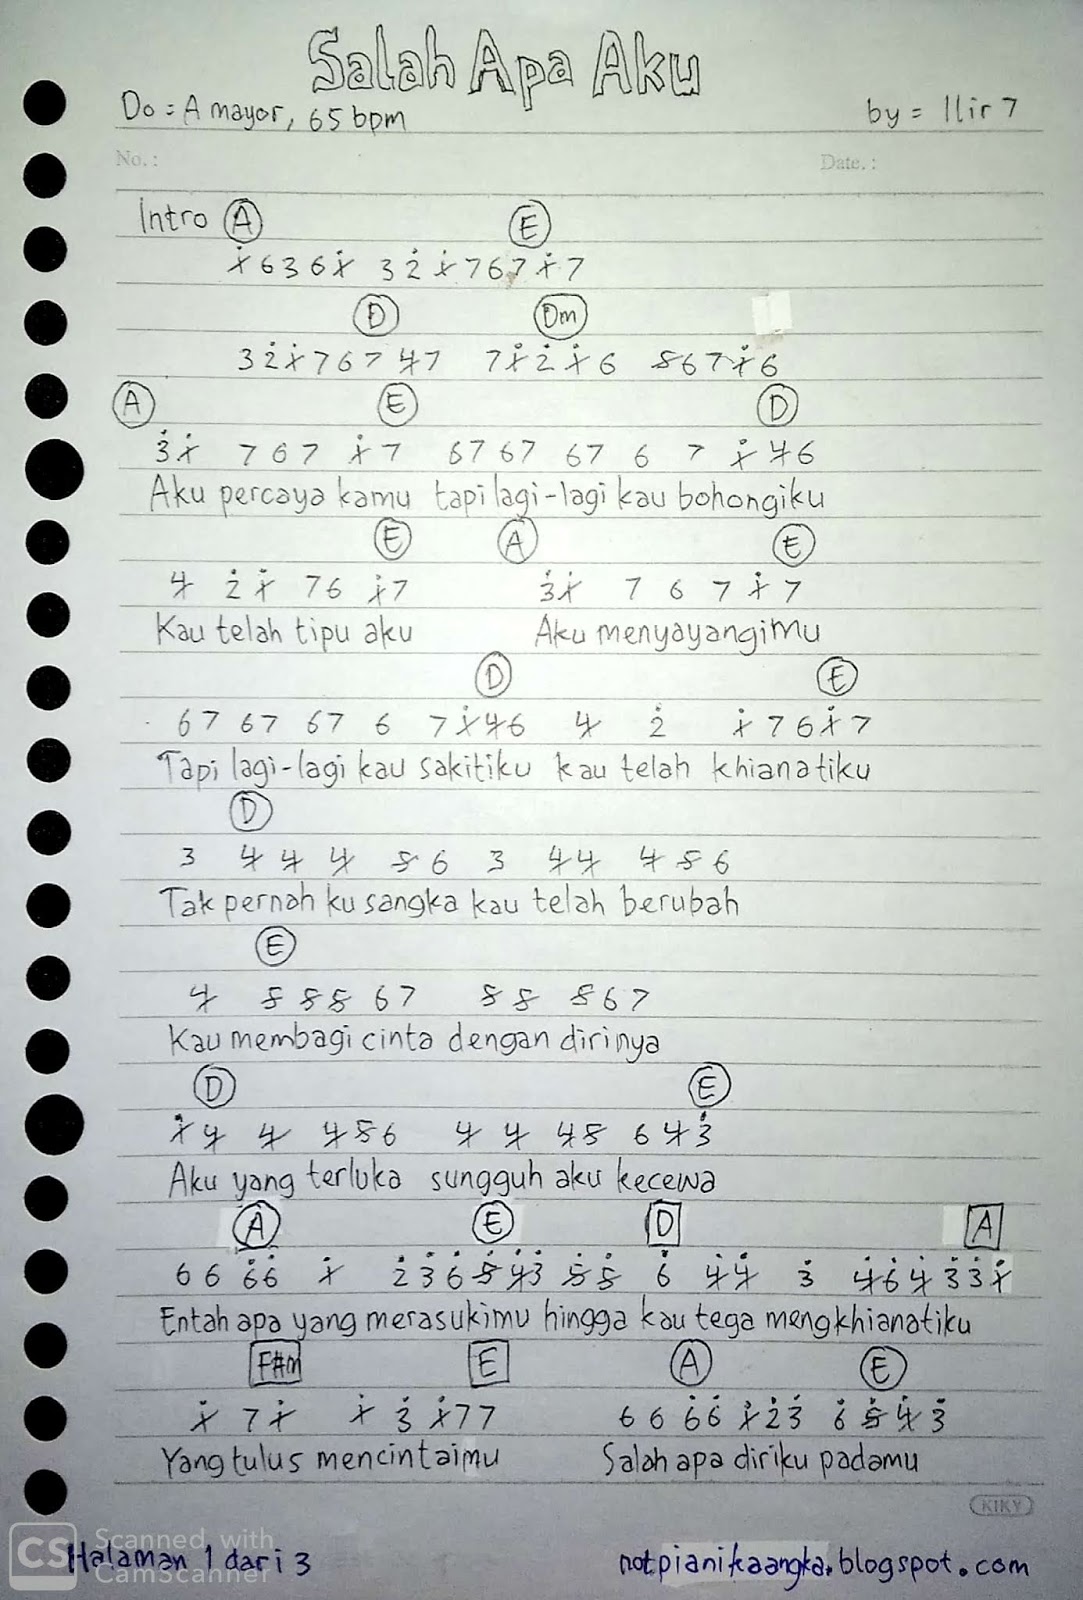 Salah Apa Aku
Do = A mayor, 65 bpm by = Ilir 7
No. : Date. :
Intro A E
1̸̇ 6 3 6 1̸̇ 3 2̇ 1̸̇ 7 6 7 1̸̇ 7
D Dm
3 2̇ 1̸̇ 7 6 7 4̸ 7 7 1̸̇ 2̇ 1̸̇ 6 5̸ 6 7 1̸̇ 6
A E D
3̇ 1̸̇ 7 6 7 1̸̇ 7 6 7 6 7 6 7 6 7 1̸̇ 4̸ 6
Aku percaya kamu tapi lagi-lagi kau bohongiku
E A E
4̸ 2̇ 1̸̇ 7 6 1̸̇ 7 3̇ 1̸̇ 7 6 7 1̸̇ 7
Kau telah tipu aku Aku menyayangimu
D E
6 7 6 7 6 7 6 7 1̸̇ 4̸ 6 4̸ 2̇ 1̸̇ 7 6 1̸̇ 7
Tapi lagi-lagi kau sakitiku kau telah khianatiku
D
3 4̸ 4̸ 4̸ 5̸ 6 3 4̸ 4̸ 4̸ 5̸ 6
Tak pernah ku sangka kau telah berubah
E
4̸ 5̸ 5̸ 5̸ 6 7 5̸ 5̸ 5̸ 6 7
Kau membagi cinta dengan dirinya
D E
1̸̇ 4̸ 4̸ 4̸ 5̸ 6 4̸ 4̸ 4̸ 5̸ 6 4̸ 3̇
Aku yang terluka sungguh aku kecewa
A E D A
6 6 6̇ 6̇ 1̸̇ 2̇ 3̇ 6̇ 5̸̇ 4̸̇ 3̇ 5̸̇ 5̸̇ 6̇ 4̸̇ 4̸̇ 3̇ 4̸̇ 6̇ 4̸̇ 3̇ 3̇ 1̸̇
Entah apa yang merasukimu hingga kau tega mengkhianatiku
F#m E A E
1̸̇ 7 1̸̇ 1̸̇ 3̇ 1̸̇ 7 7 6 6 6̇ 6̇ 1̸̇ 2̇ 3̇ 6̇ 5̸̇ 4̸̇ 3̇
Yang tulus mencintaimu Salah apa diriku padamu
KIKY
CS Scanned with
CamScanner
Halaman 1 dari 3 notpianikaangka.blogspot.com